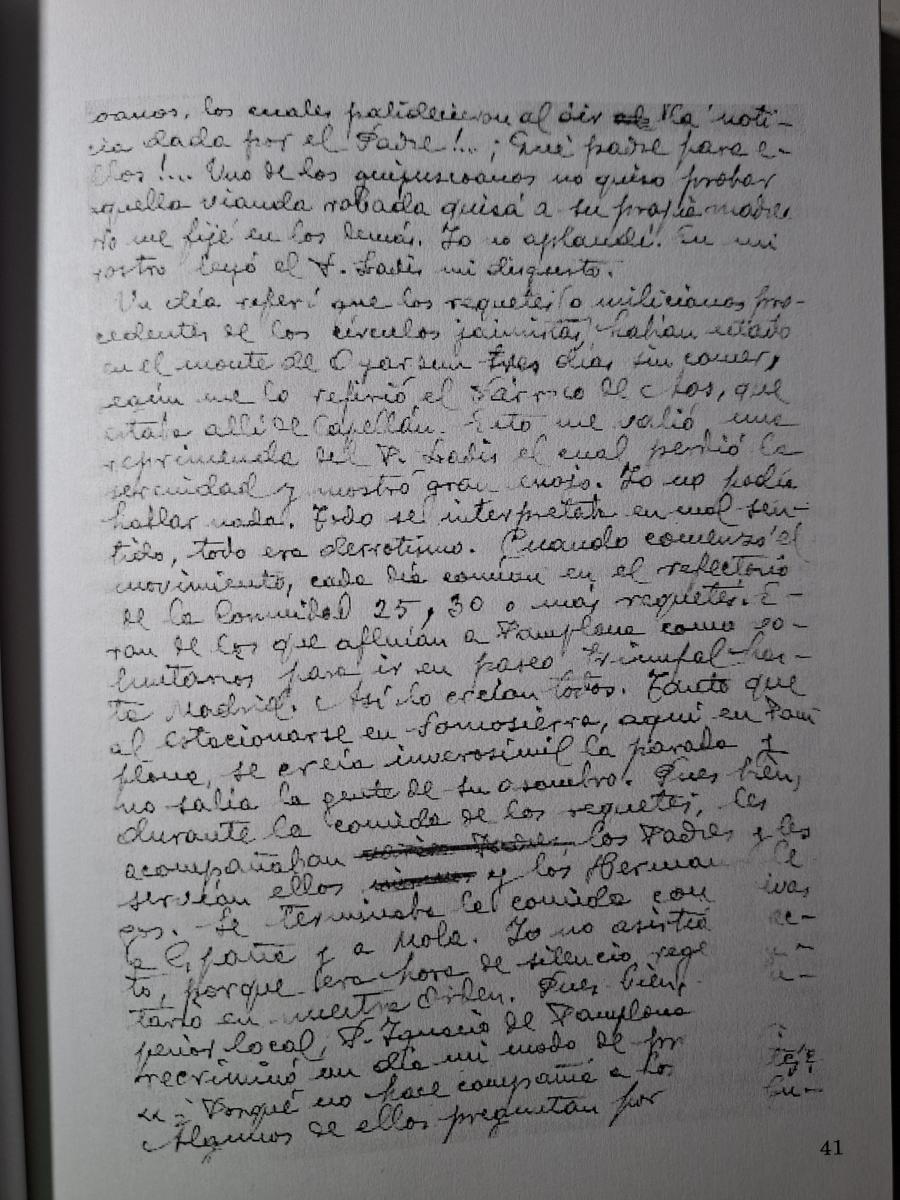 oanos, los cuales palidecieron al oir la noti-
cia dada por el Padre!... ¡Qué padre para e-
llos!... Uno de los guipuscoanos no quiso probar
aquella vianda robada quisá a su propia madre.
No me fijé en los demás. Yo no aplaudí. En mi
rostro leyó el P. Ladis mi disgusto.
Un día referí que los requetés (o milicianos pro-
cedentes de los círculos jaimistas) habían estado
en el monte de Oyarsun tres días sin comer,
según me lo refirió el Párroco de Aos, que
estaba allí de Capellán. Esto me valió una
reprimenda del P. Ladis el cual perdió la
serenidad y mostró gran enojo. Yo no podía
hablar nada. Todo se interpretaba en mal sen-
tido, todo era derrotismo. Cuando comenzó el
movimiento, cada día comían en el refectorio
de la Comunidad 25, 30 o más requetés. E-
ran de los que afluían a Pamplona como vo-
luntarios para ir en paseo triunfal has-
ta Madrid. Así lo creían todos. Tanto que
al estacionarse en Somosierra, aquí en Pam
plona, se creía inverosímil la parada y
no salía la gente de su asombro. Pues bien,
durante la comida de los requetés, les
acompañaban los Padres y les
servían ellos y los Herman le
gos. Se terminaba la comida con ivas
a España y a Mola. Yo no asistía ac-
to, porque era hora de silencio rege
tario en nuestra Orden. Pues bien,
perior local, P. Ignacio de Pamplona
recriminó un día mi modo de pr
"¿Porqué no hace compañía a los
Algunos de ellos preguntan por